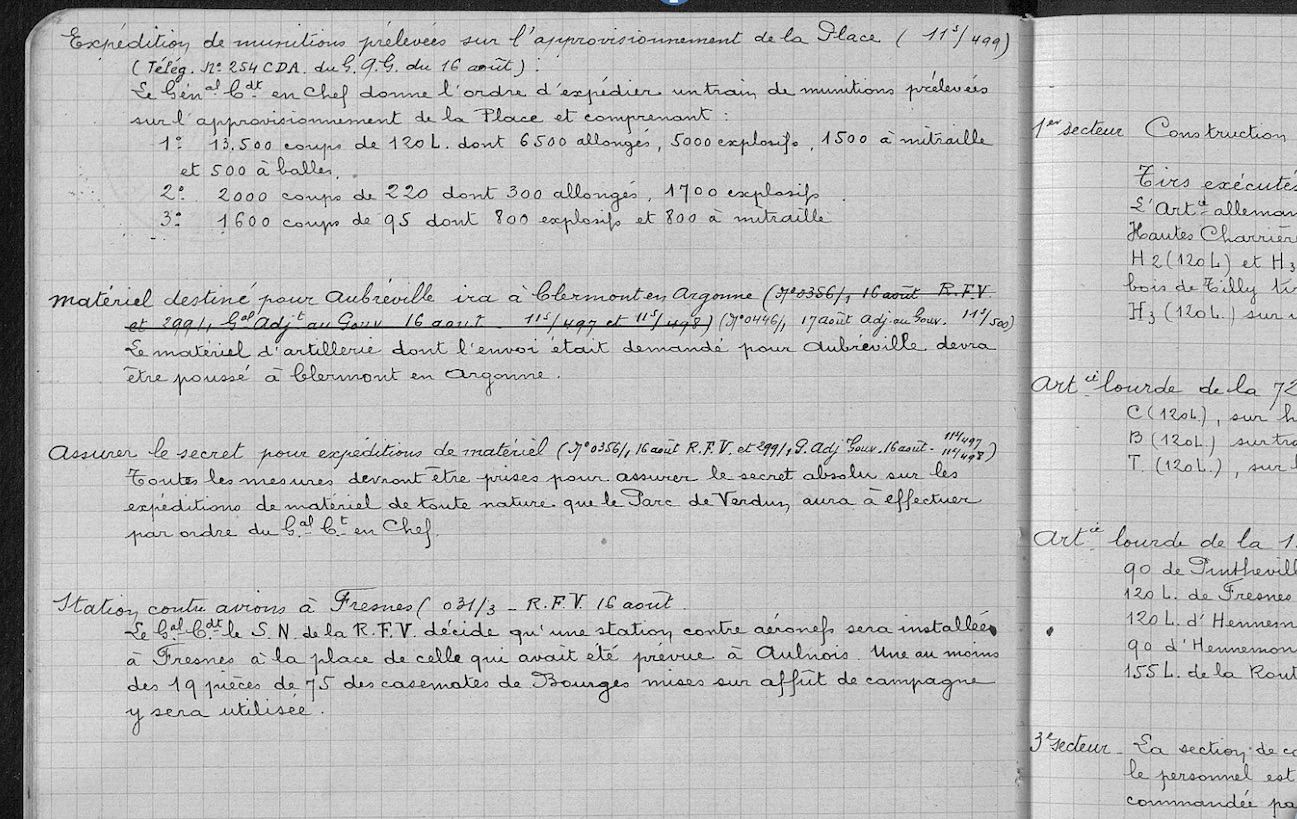 Expédition de munitions prélevées sur l'approvisionnement de la Place ( 11⁵/499)
( Télég. N° 254 CDA. du G.Q.G. du 16 août ) :
Le Génᵃˡ Cᵈᵗ en Chef donne l'ordre d'expédier un train de munitions prélevées
sur l'approvisionnement de la Place et comprenant :
1° 13.500 coups de 120 L. dont 6500 allongés, 5000 explosifs, 1500 à mitraille
et 500 à balles,
2° 2000 coups de 220 dont 300 allongés, 1700 explosifs
3° 1600 coups de 95 dont 800 explosifs et 800 à mitraille
matériel destiné pour Aubréville ira à Clermont en Argonne (N° 0356/, 16 août R.F.V.
et 299/, Gᵃˡ Adjᵗ au Gouv 16 août 11⁵/497 et 11⁵/498) (N° 0446/, 17 août Adj. au Gouv. 11⁵/500)
Le matériel d'artillerie dont l'envoi était demandé pour Aubréville devra
être poussé à Clermont en Argonne.
Assurer le secret pour expéditions de matériel (N° 0356/, 16 août R.F.V. et 299/, G. Adj Gouv. 16 août - 11⁴/497 11⁴/498)
Toutes les mesures devront être prises pour assurer le secret absolu sur les
expéditions de matériel de toute nature que le Parc de Verdun, aura à effectuer
par ordre du G.ᵃˡ C.ᵗ en Chef.
Station contre avions à Fresnes ( 031/3 - R.F.V. 16 août
Le Gᵃˡ Cᵈᵗ le S.N. de la R.F.V. décide qu'une station contre aéronefs sera installée
à Fresnes à la place de celle qui avait été prévue à Aulnois. Une au moins
des 19 pièces de 75 des casemates de Bourges mises sur affût de campagne
y sera utilisée.
1ᵉʳ secteur Construction
Tirs exécutés
L'Artⁱᵉ alleman
Hautes Charrièr
H2 (120 L) et H3
bois de Tilly tir
H3 (120 L.) sur
Artⁱᵉ lourde de la 72
C (120 L), sur h
B (120 L) sur tra
T. (120 L.), sur
Artⁱᵉ lourde de la 1
90 de Pinthevill
120 L. de Fresnes
120 L. d'Hennem
90 d'Hennemon
155 L. de la Rout
3ᵉ secteur - La section de co
le personnel est
commandée pa